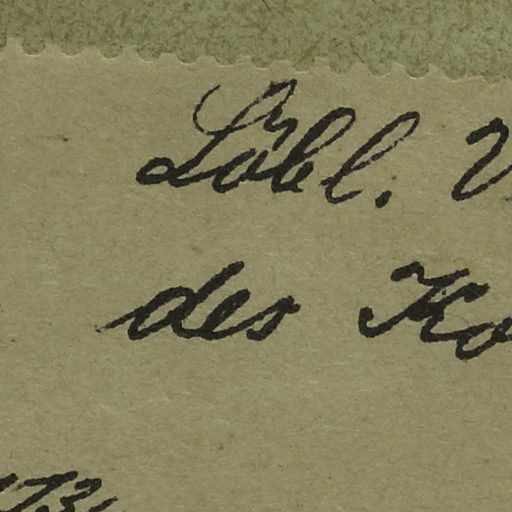 Löbl. V
des Ko